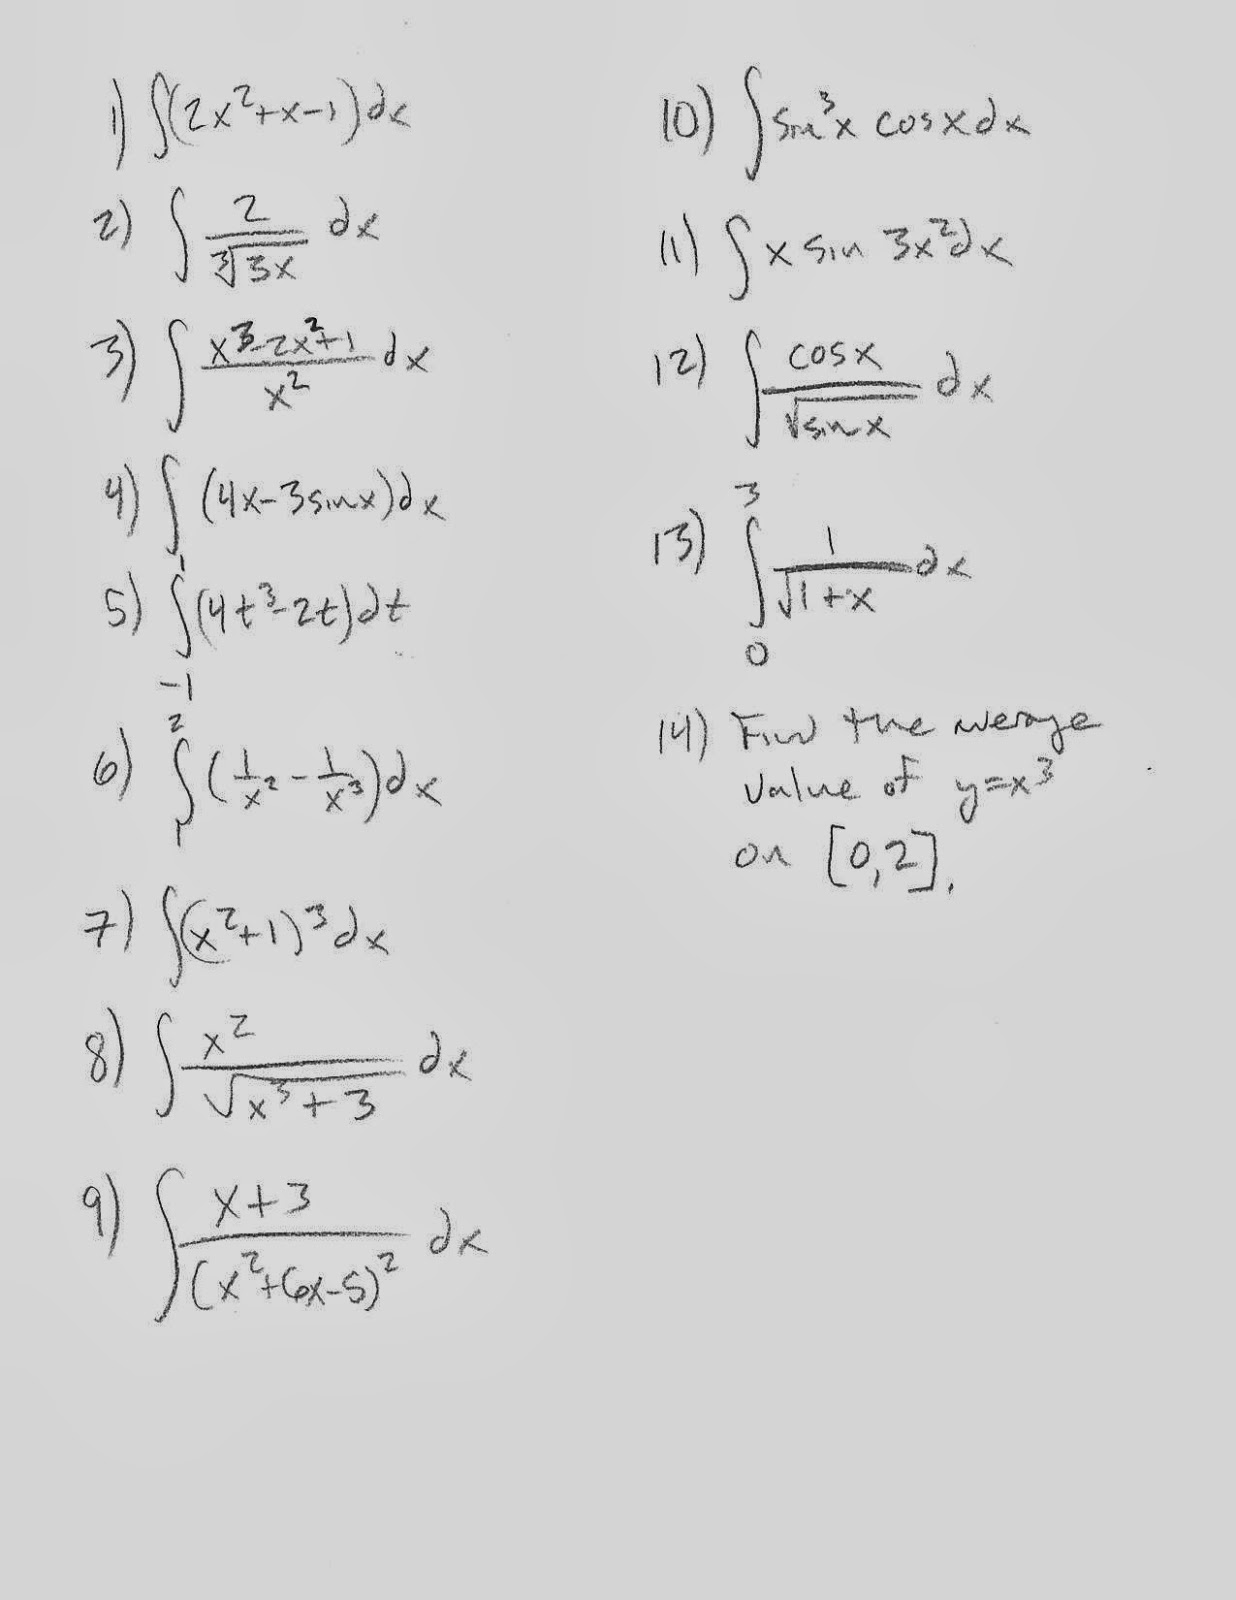 1) ∫(2x²+x-1)dx
2) ∫ 2/∛(3x) dx
3) ∫ (x³-2x²+1)/x² dx
4) ∫ (4x-3sinx)dx
5) ∫₋₁¹ (4t³-2t)dt
6) ∫₁² (1/x² - 1/x³)dx
7) ∫(x²+1)³dx
8) ∫ x²/√(x³+3) dx
9) ∫ (x+3)/(x²+6x-5)² dx
10) ∫ sin³x cosx dx
11) ∫ x sin 3x² dx
12) ∫ cosx/√(sinx) dx
13) ∫₀³ 1/√(1+x) dx
14) Find the average
value of y=x³
on [0,2].